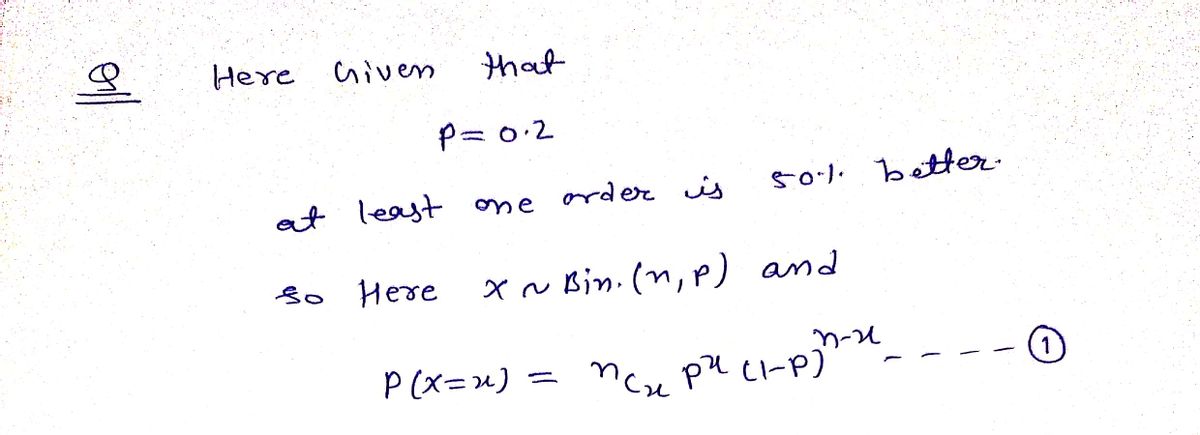 Q Here Given that
p = 0.2
at least one order is 50% better.
so Here X ~ Bin. (n, p) and
P(X=x) = nCx p^x (1-p)^n-x - - - - ①